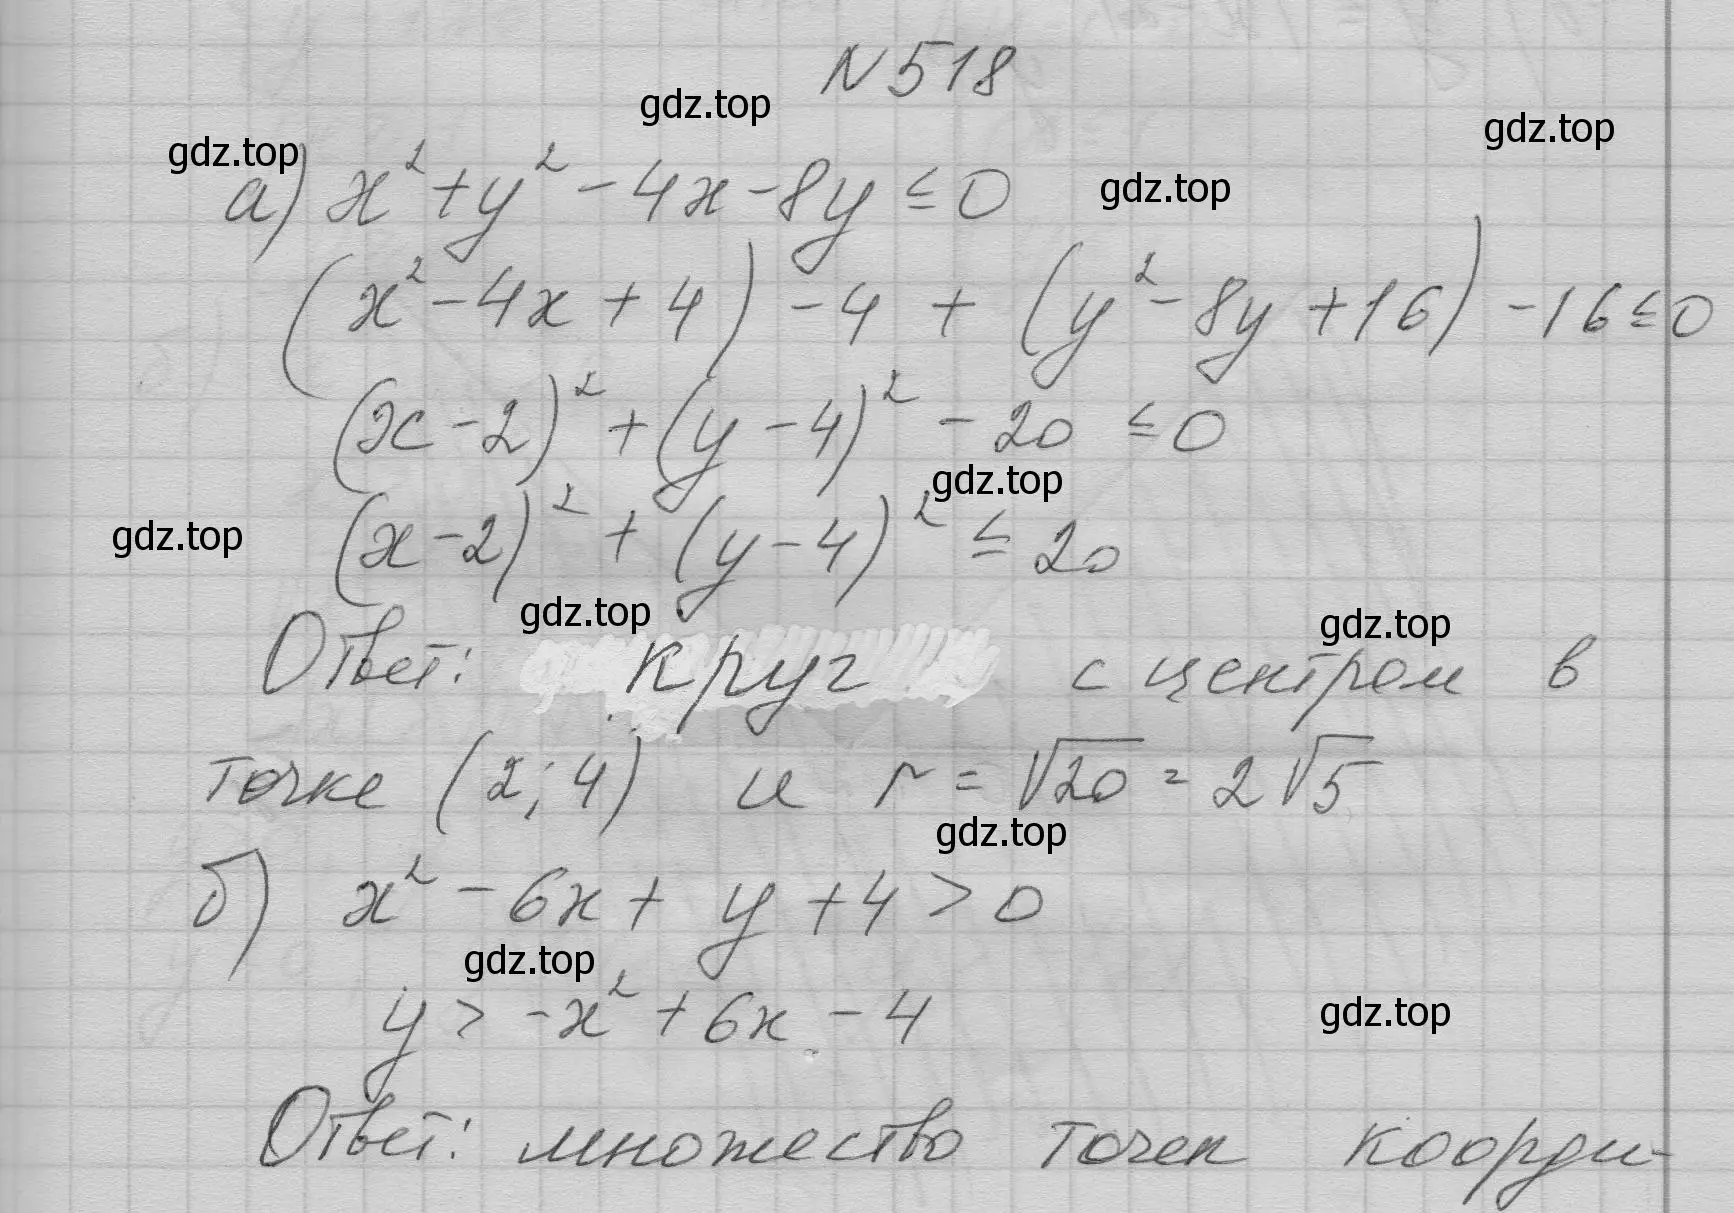 N 518
gdz.top
gdz.top
gdz.top
gdz.top
а) x² + y² - 4x - 8y ≤ 0
(x² - 4x + 4) - 4 + (y² - 8y + 16) - 16 ≤ 0
(x - 2)² + (y - 4)² - 20 ≤ 0
gdz.top
gdz.top
(x - 2)² + (y - 4)² ≤ 20
gdz.top
gdz.top
Ответ: круг с центром в
точке (2; 4) и r = √20 = 2√5
gdz.top
б) x² - 6x + y + 4 > 0
gdz.top
gdz.top
y > -x² + 6x - 4
Ответ: множество точек коорди-